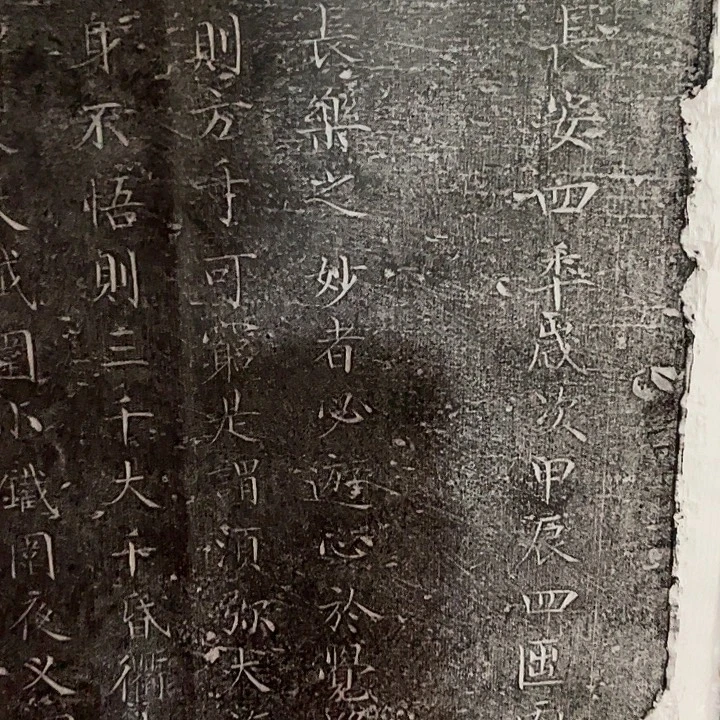 長安四秊歲次甲辰四𠥱
長樂之妙者必遊心於覺
則方可窮是謂須弥大
身不悟則三千大千昏衢
大鐵圍小鐵圍夜叉